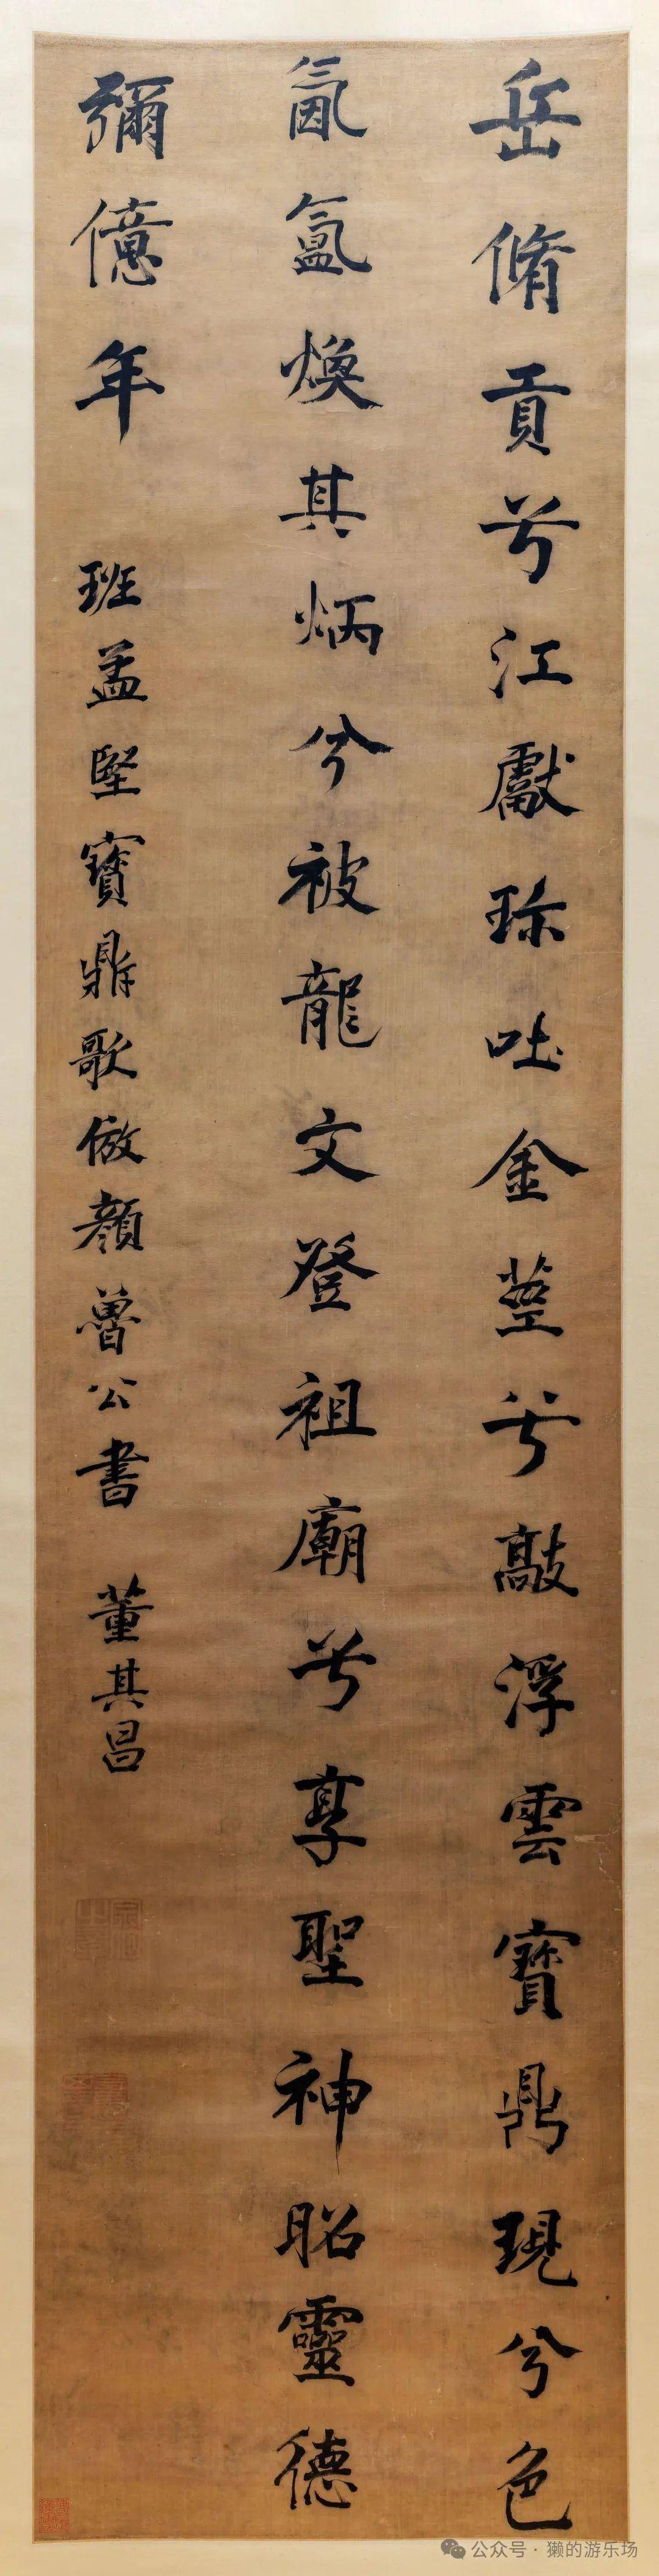 岳脩貢兮江獻珎吐金莖兮敲浮雲寶鼎現兮色
氤氳煥其炳兮被龍文登祖廟兮享聖神昭靈德
彌億年 班孟堅寶鼎歌倣顏魯公書 董其昌
公众号·獭的游乐场